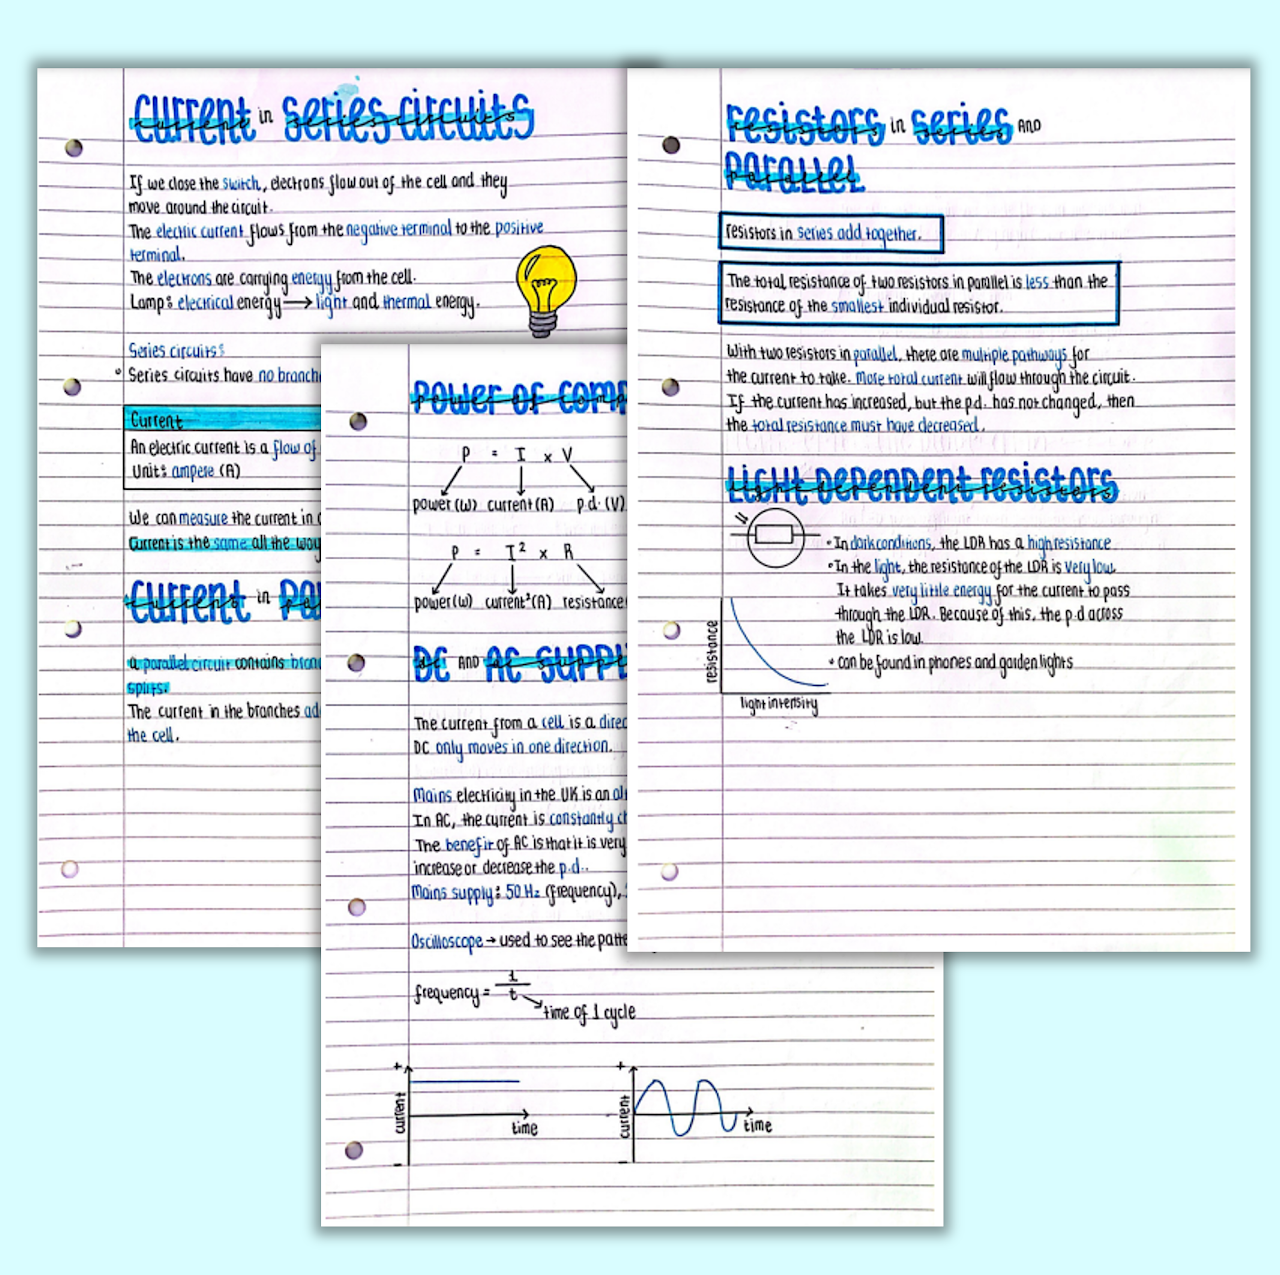 Current in Series Circuits
If we close the switch, electrons flow out of the cell and they
move around the circuit.
The electric current flows from the negative terminal to the positive
terminal.
The electrons are carrying energy from the cell.
Lamp: electrical energy → light and thermal energy.
Series circuits:
• Series circuits have no branch
Current
An electric current is a flow of
Unit: ampere (A)
We can measure the current in
Current is the same all the way
Current in Pa
a parallel circuit contains bran
splits.
The current in the branches ad
the cell.
Power of Comp
P = I x V
power (W) current (A) p.d. (V)
P = I² x R
power (W) current² (A) resistance
DC AND AC Supply
The current from a cell is a direc
DC only moves in one direction.
Mains electricity in the UK is an al
In AC, the current is constantly ch
The benefit of AC is that it is very
increase or decrease the p.d..
Mains supply: 50 Hz (frequency),
Oscilloscope → used to see the patte
frequency = 1
t
time of 1 cycle
+
current
-
time
+
current
-
time
resistors in series AND
Parallel
resistors in series add together.
The total resistance of two resistors in parallel is less than the
resistance of the smallest individual resistor.
With two resistors in parallel, there are multiple pathways for
the current to take. More total current will flow through the circuit.
If the current has increased, but the p.d. has not changed, then
the total resistance must have decreased.
Light Dependent resistors
• In dark conditions, the LDR has a high resistance
• In the light, the resistance of the LDR is very low.
It takes very little energy for the current to pass
through the LDR. Because of this, the p.d across
the LDR is low.
• can be found in phones and garden lights
resistance
light intensity